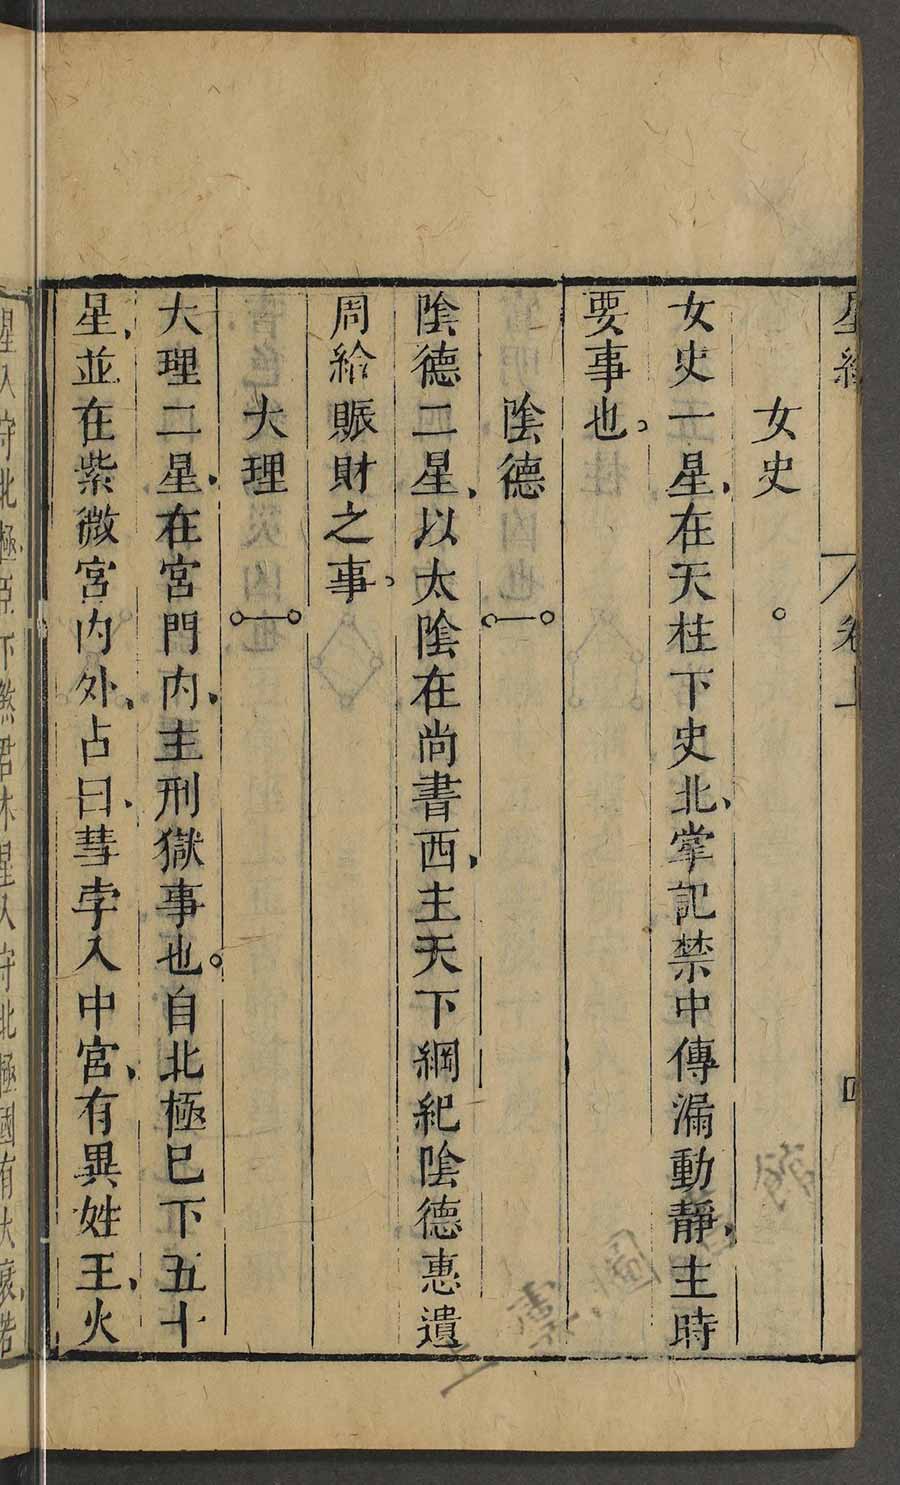 星經 卷上 四
女史
女史一星在天柱下史北掌記禁中傳漏動靜主時
要事也
陰德
陰德二星以太陰在尚書西主天下綱紀陰德惠遺
周給賑財之事
大理
大理二星在宮門内主刑獄事也自北極已下五十
星並在紫微宮内外占曰彗孛入中宮有異姓王火
星入守北極臣下煞君木星入守北極國有大喪